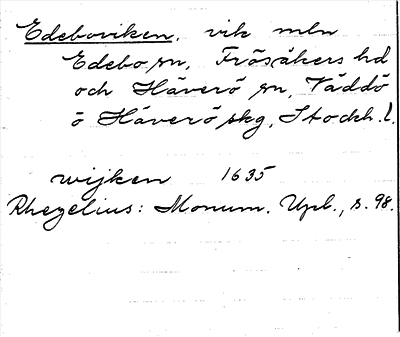 Edeboviken, vik mln
Edebo sn, Frösåkers hd
och Häverö sn, Väddö
o Häverö skg, Stockh. l.
wijken 1635
Rhezelius: Monum. Upl., s. 98.